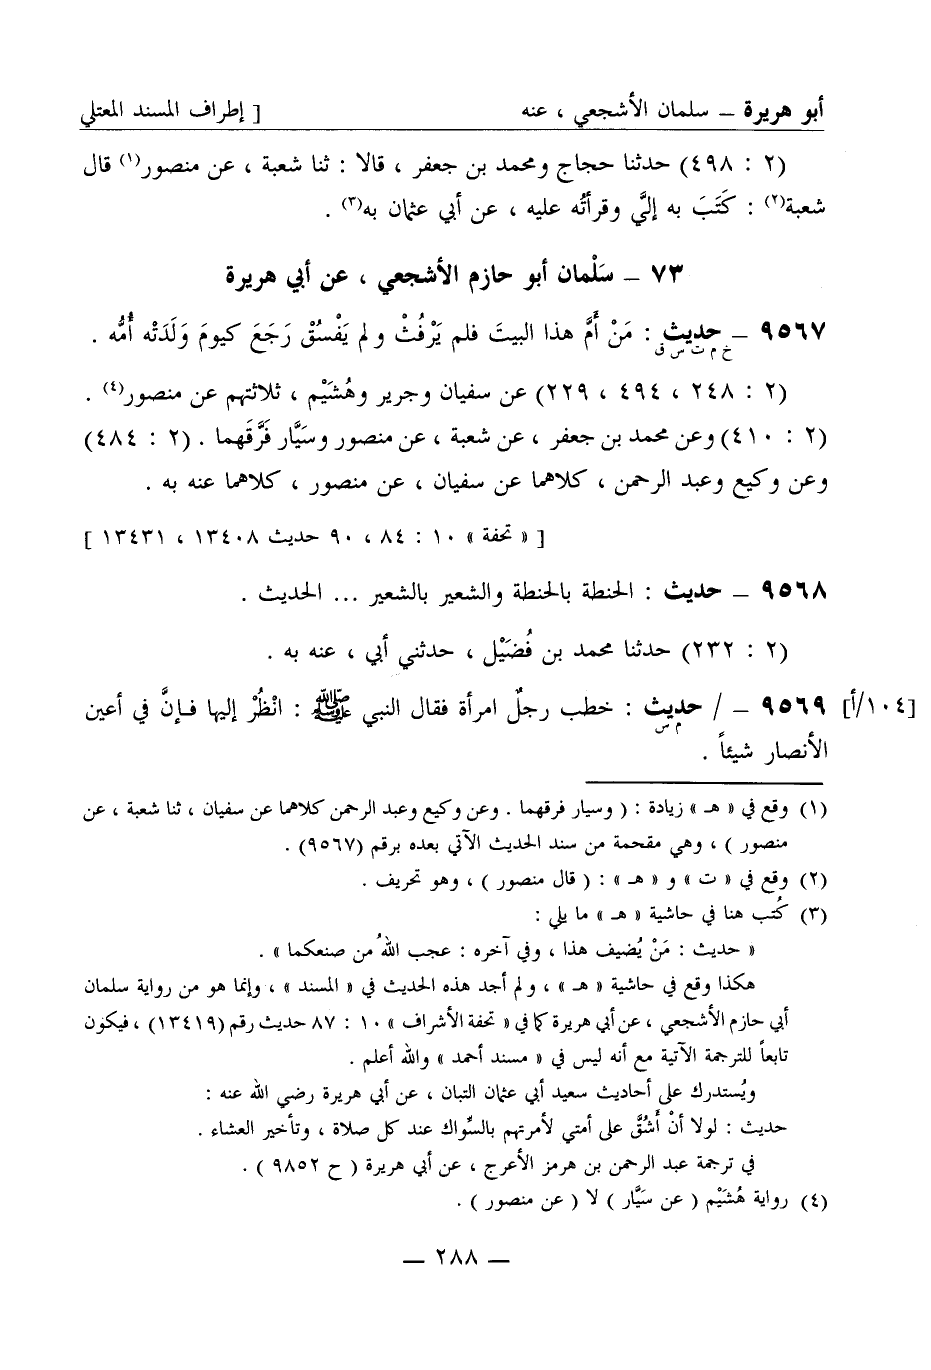 أبو هريرة – سلمان الأشجعي ، عنه [ إطراف المسند المعتلي
(٢ : ٤٩٨) حدثنا حجاج ومحمد بن جعفر ، قالا : ثنا شعبة ، عن منصور(١) قال
شعبة(٢) : كَتَبَ به إليَّ وقرأتُه عليه ، عن أبي عثمان به(٣) .
٧٣ – سَلْمان أبو حازم الأشجعي ، عن أبي هريرة
٩٥٦٧ – حديث : مَنْ أَمَّ هذا البيتَ فلم يَرْفُثْ ولم يَفْسُقْ رَجَعَ كيومَ وَلَدَتْه أُمُّه .
خ م ت س ق
(٢ : ٢٤٨ ، ٤٩٤ ، ٢٢٩) عن سفيان وجرير وهُشَيْم ، ثلاثتهم عن منصور(٤) .
(٢ : ٤١٠) وعن محمد بن جعفر ، عن شعبة ، عن منصور وسَيَّار فَرَّقَهما . (٢ : ٤٨٤)
وعن وكيع وعبد الرحمن ، كلاهما عن سفيان ، عن منصور ، كلاهما عنه به .
[ « تحفة » ١٠ : ٨٤ ، ٩٠ حديث ١٣٤٠٨ ، ١٣٤٣١ ]
٩٥٦٨ – حديث : الحنطة بالحنطة والشعير بالشعير ... الحديث .
(٢ : ٢٣٢) حدثنا محمد بن فُضَيْل ، حدثني أبي ، عنه به .
[١٠٤/أ] ٩٥٦٩ – / حديث : خطب رجلٌ امرأة فقال النبي ﷺ : انْظُرْ إليها فإنَّ في أعين
م س
الأنصار شيئاً .
(١) وقع في « هـ » زيادة : ( وسيار فرقهما . وعن وكيع وعبد الرحمن كلاهما عن سفيان ، ثنا شعبة ، عن
منصور ) ، وهي مقحمة من سند الحديث الآتي بعده برقم (٩٥٦٧) .
(٢) وقع في « ت » و « هـ » : ( قال منصور ) ، وهو تحريف .
(٣) كُتب هنا في حاشية « هـ » ما يلي :
« حديث : مَنْ يُضيف هذا ، وفي آخره : عجب اللهُ من صنعكما » .
هكذا وقع في حاشية « هـ » ، ولم أجد هذه الحديث في « المسند » ، وإنما هو من رواية سلمان
أبي حازم الأشجعي ، عن أبي هريرة كما في « تحفة الأشراف » ١٠ : ٨٧ حديث رقم (١٣٤١٩) ، فيكون
تابعاً للترجمة الآتية مع أنه ليس في « مسند أحمد » والله أعلم .
ويُستدرك على أحاديث سعيد أبي عثمان التبان ، عن أبي هريرة رضي الله عنه :
حديث : لولا أنْ أَشُقَّ على أمتي لأمرتهم بالسِّواك عند كل صلاة ، وتأخير العشاء .
في ترجمة عبد الرحمن بن هرمز الأعرج ، عن أبي هريرة ( ح ٩٨٥٢ ) .
(٤) رواية هُشَيْم ( عن سَيَّار ) لا ( عن منصور ) .
– ٢٨٨ –